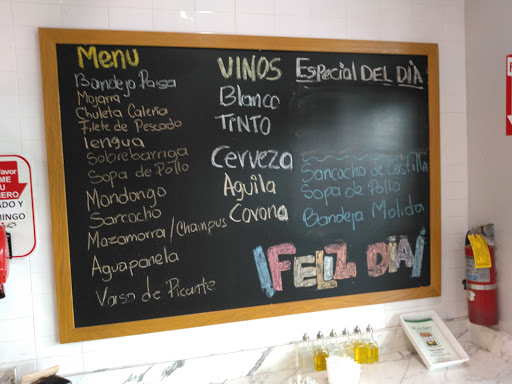 Menu
Bandeja Paisa
Mojarra
Chuleta Caleña
Filete de Pescado
lengua
Sobrebarriga
Sopa de Pollo
Mondongo
Sancocho
Mazamorra/Champus
Aguapanela
Vaso de Picante
VINOS
Blanco
TINTO
Cerveza
Aguila
Corona
Especial DEL DIA
Sancocho de Costilla
Sopa de Pollo
Bandeja Molida
¡FELIZ DIA!
Favor